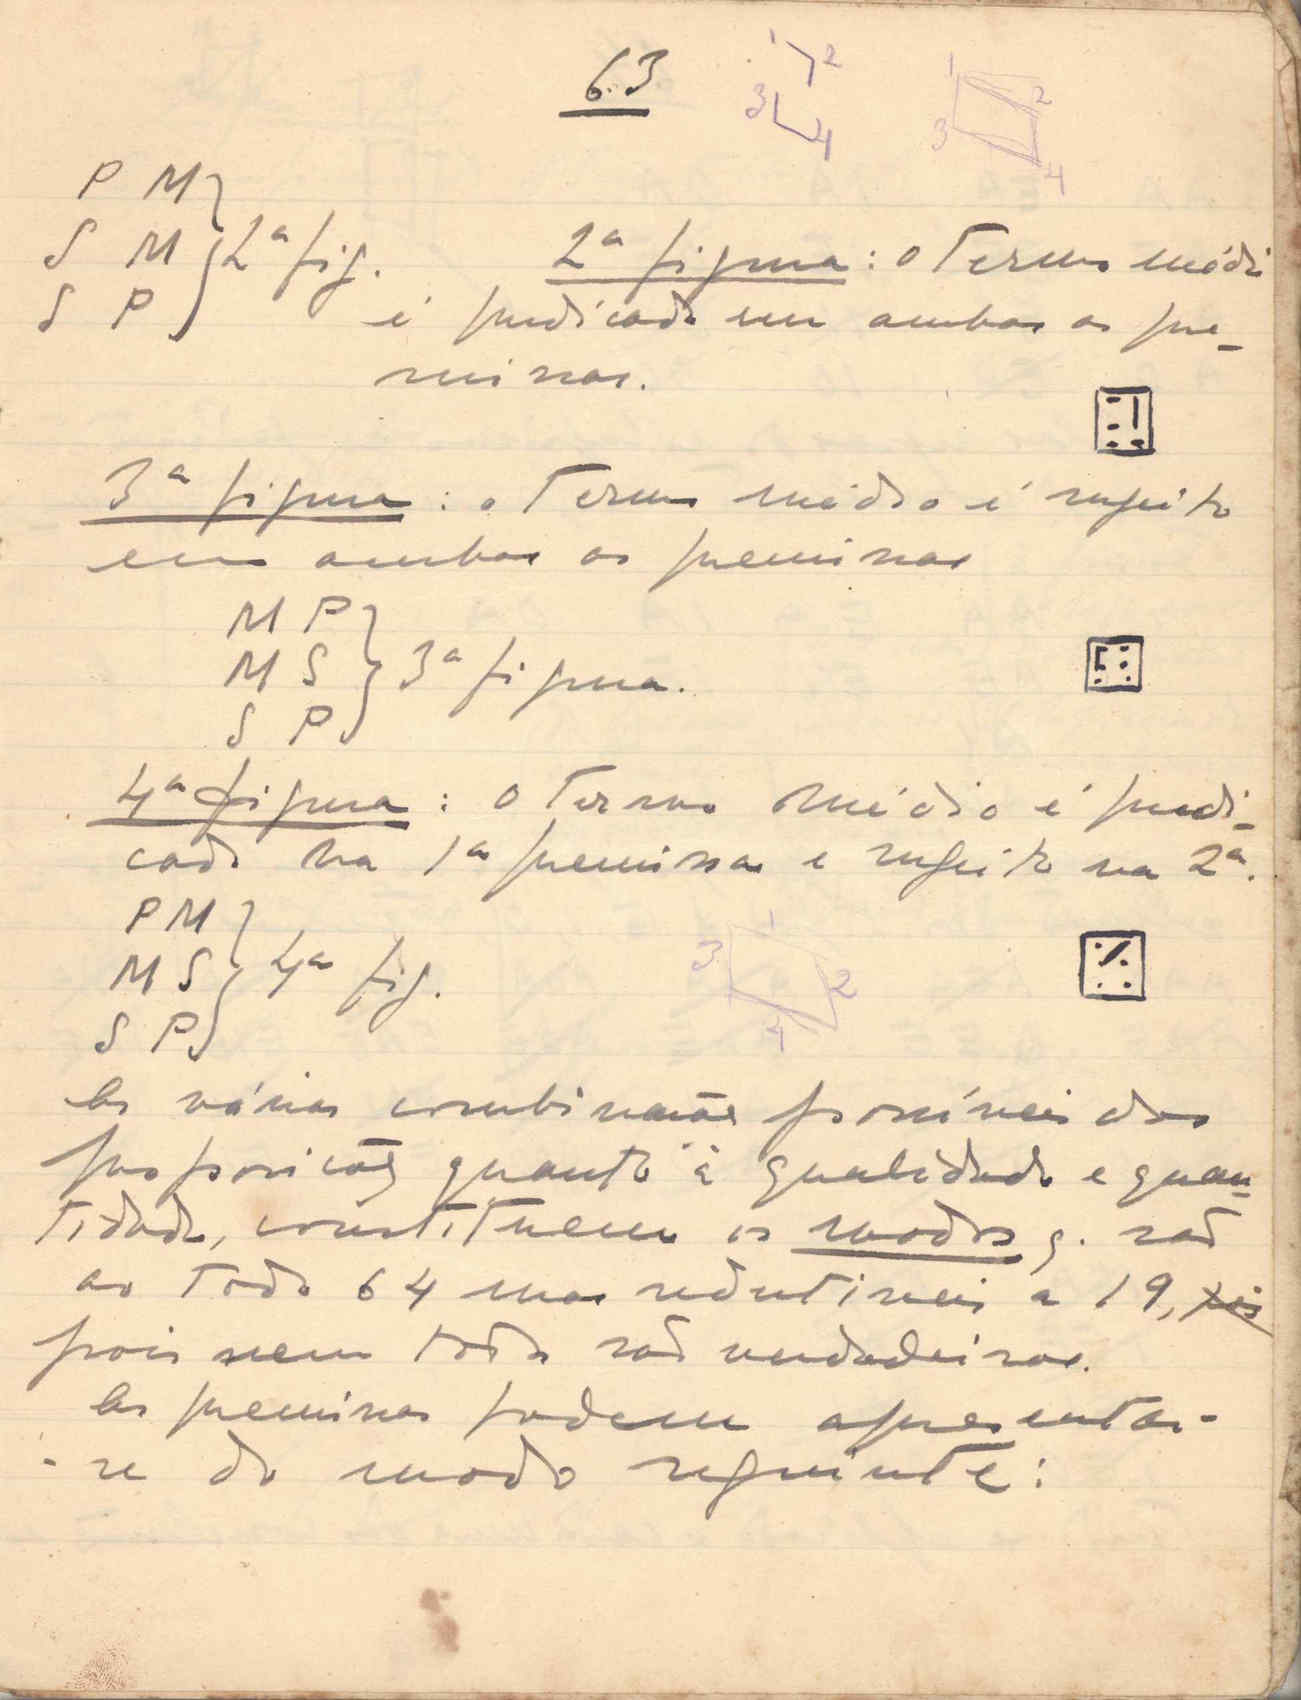 63
1 2
3 4
1
2
3
4
P M
S M } 2ª fig.
S P
2ª figura: o termo médio
é predicado em ambas as pre-
missas.
3ª figura: o termo médio é sujeito
em ambas as premissas
M P
M S } 3ª figura.
S P
4ª figura: o termo médio é predi-
cado na 1ª premissa e sujeito na 2ª.
P M
M S } 4ª fig.
S P
1
3
2
4
As várias combinações possíveis das
proposições quanto à qualidade e quan-
tidade, constituem os modos q. são
ao todo 64 mas redutíveis a 19,
pois nem todos são verdadeiros.
As premissas podem apresentar-
-se do modo seguinte: